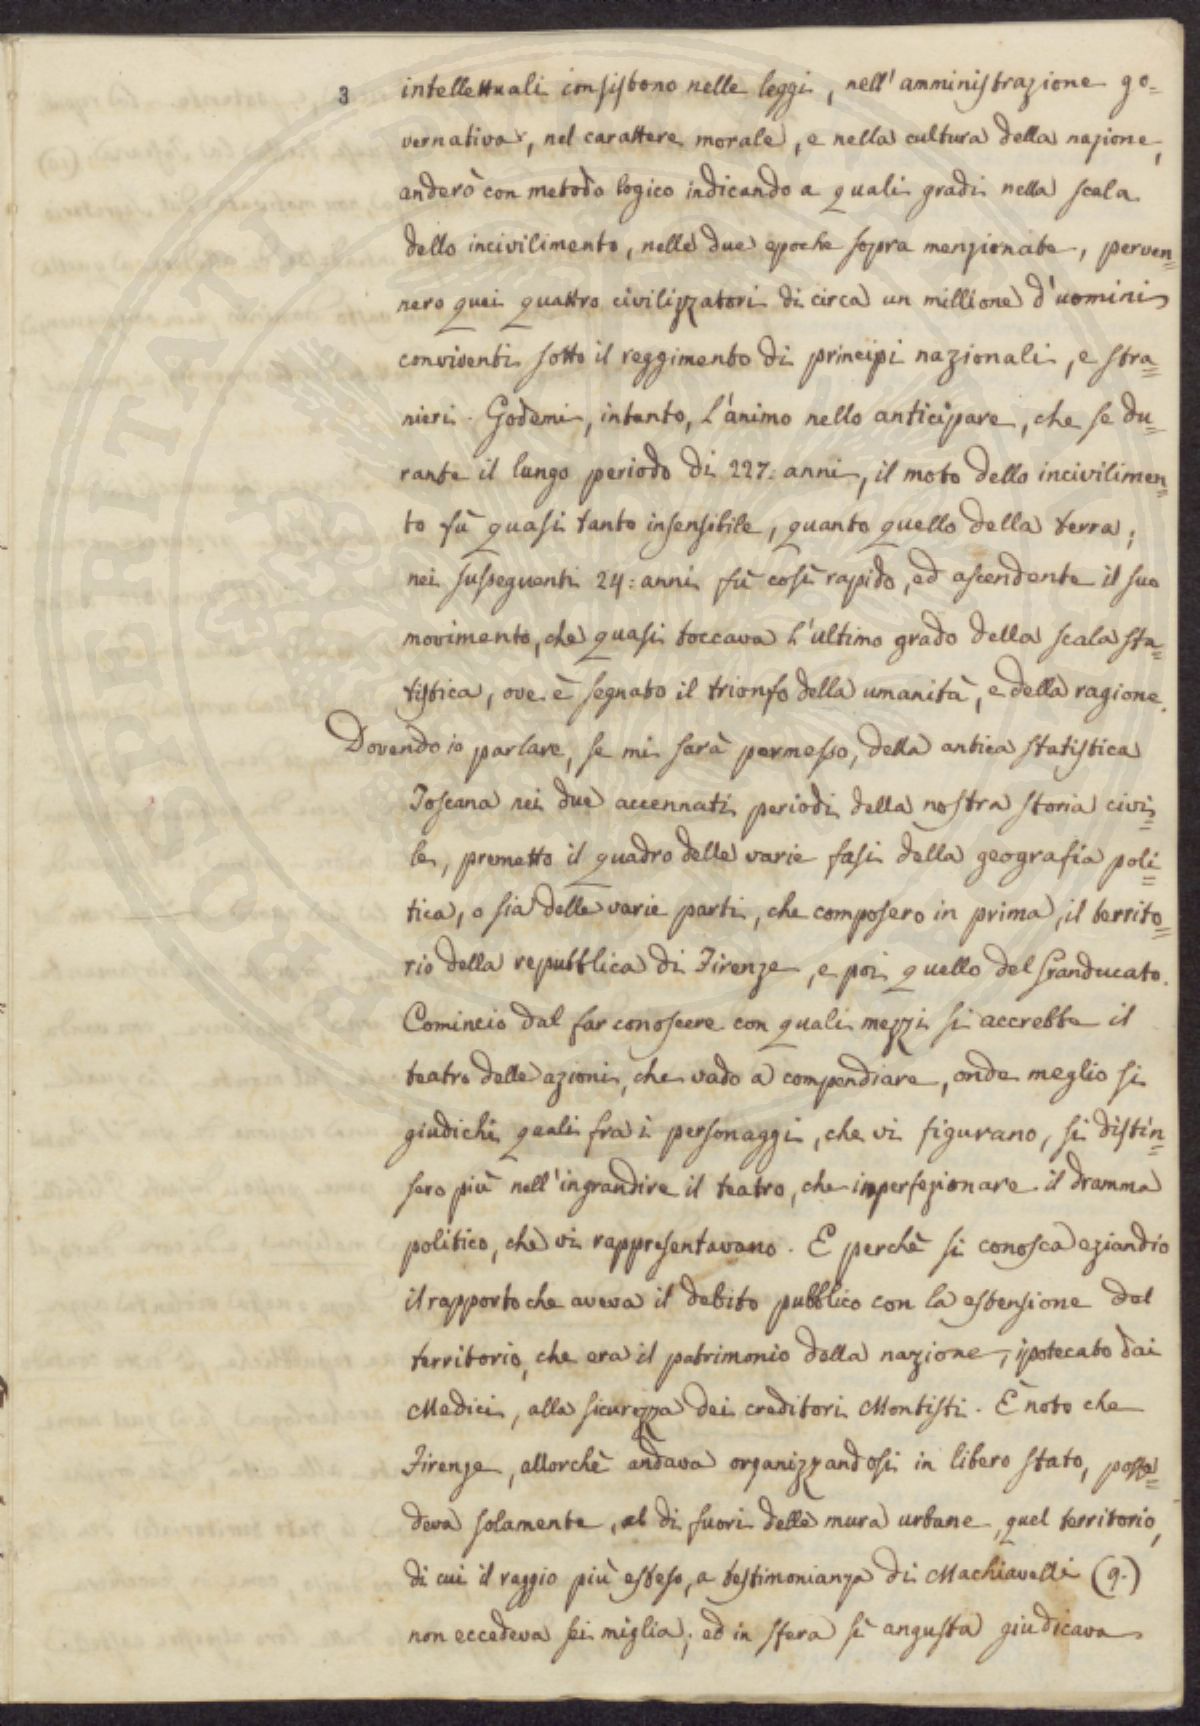 3
intellettuali consistono nelle leggi, nell'amministrazione go=
vernativa, nel carattere morale, e nella cultura della nazione,
anderò con metodo logico indicando a quali gradi nella scala
dello incivilimento, nelle due epoche sopra menzionate, perven=
nero quei quattro civilizzatori di circa un millione d'uomini
conviventi sotto il reggimento di principi nazionali, e stra=
nieri. Godemi, intanto, l'animo nello anticipare, che se du=
rante il lungo periodo di 227: anni, il moto dello incivilimen=
to fù quasi tanto insensibile, quanto quello della terra;
nei susseguenti 24: anni fù così rapido, ed ascendente il suo
movimento, che quasi toccava l'ultimo grado della scala sta=
tistica, ove è segnato il trionfo della umanità, e della ragione.
Dovendo io parlare, se mi sarà permesso, della antica statistica
Toscana nei due accennati periodi della nostra storia civi=
le, premetto il quadro delle varie fasi della geografia poli=
tica, o sia delle varie parti, che composero in prima, il territo=
rio della repubblica di Firenze, e poi quello del Granducato.
Comincio dal far conoscere con quali mezzi si accrebbe il
teatro delle azioni, che vado a compendiare, onde meglio si
giudichi quali fra i personaggi, che vi figurano, si distin=
sero più nell'ingrandire il teatro, che in perfezionare il dramma
politico, che vi rappresentavano. E perchè si conosca eziandio
il rapporto che aveva il debito pubblico con la estensione del
territorio, che era il patrimonio della nazione, ipotecato dai
Medici, alla sicurezza dei creditori Montisti. È noto che
Firenze, allorchè andava organizzandosi in libero stato, posse=
deva solamente, al di fuori delle mura urbane, quel territorio,
di cui il raggio più esteso, a testimonianza di Machiavelli (9.)
non eccedeva sei miglia; ed in sfera sì angusta giudicava
PROSPERITATI PUBLICAE